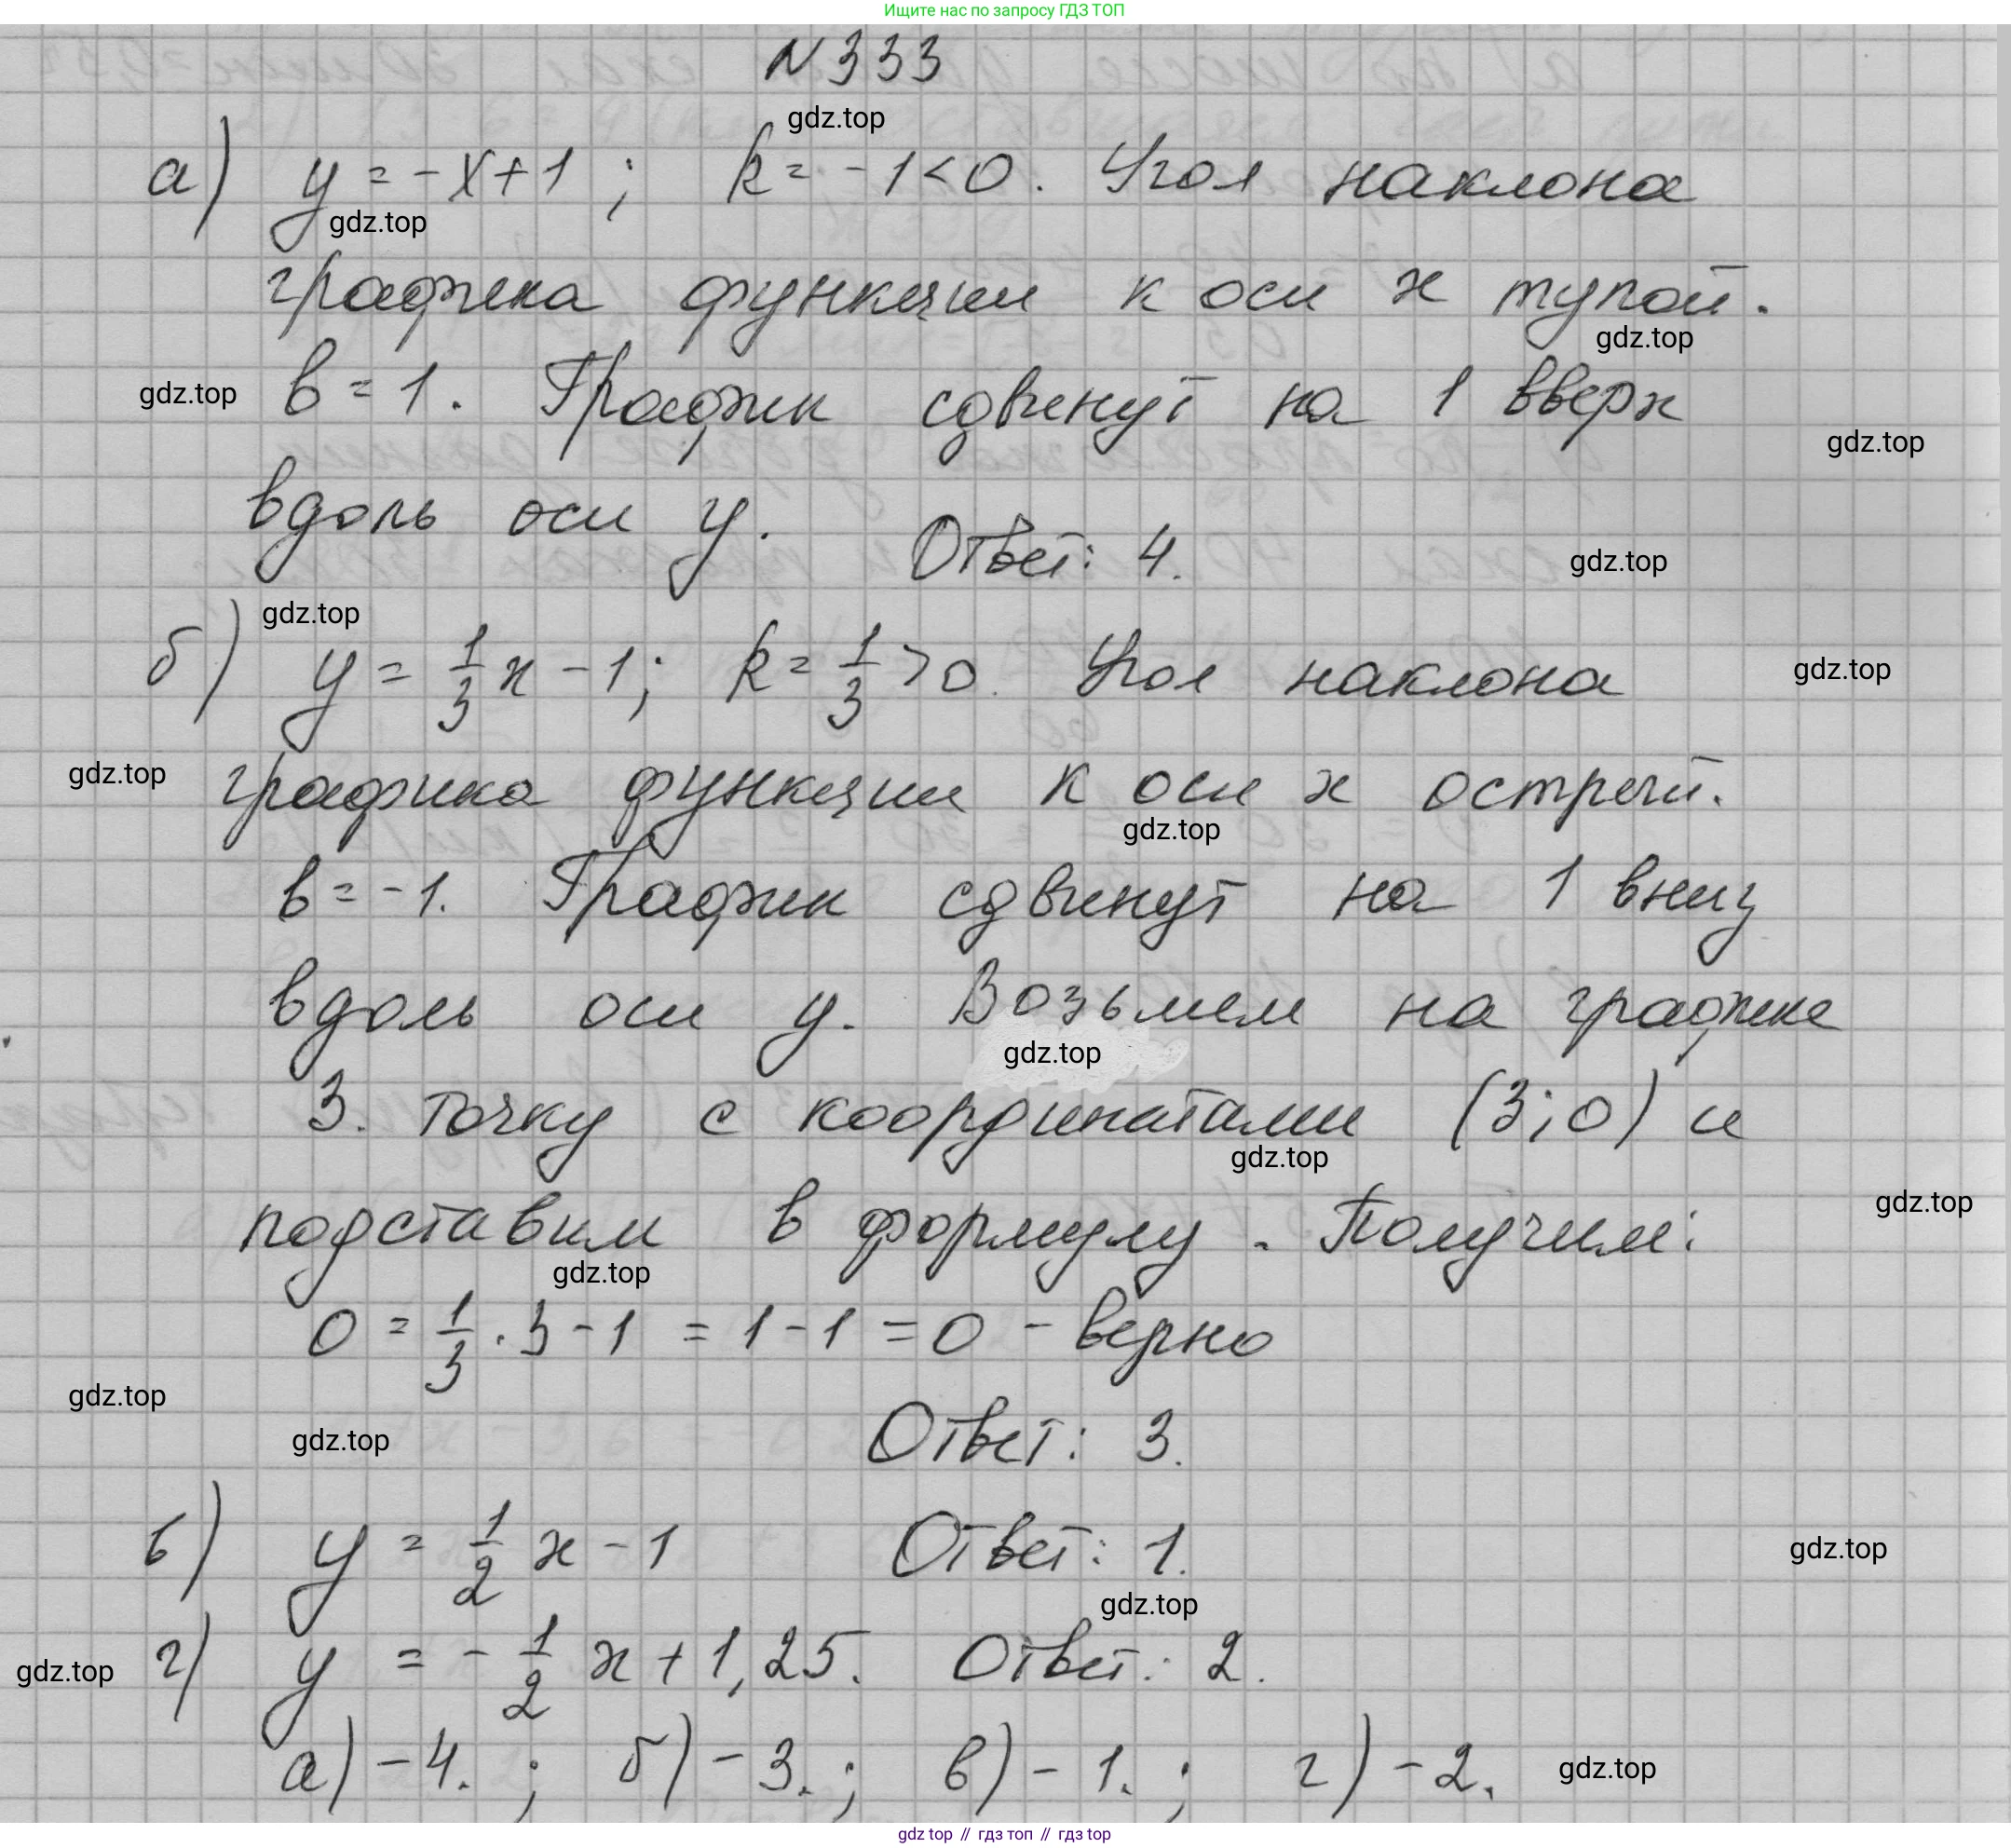 Ищите нас по запросу ГДЗ ТОП
N 333
gdz.top
а) y = -x+1 ; k = -1<0. Угол наклона
gdz.top
графика функции к оси x тупой.
gdz.top
gdz.top b = 1. График сдвинут на 1 вверх
gdz.top
вдоль оси y. Ответ: 4.
gdz.top
gdz.top
б) y = 1/3 x - 1; k = 1/3 > 0. Угол наклона gdz.top
gdz.top графика функции к оси x острый.
gdz.top
b = -1. График сдвинут на 1 вниз
вдоль оси y. Возьмем на графике
gdz.top
3. точку с координатами (3; 0) и
gdz.top
gdz.top
подставим в формулу. Получим:
gdz.top
0 = 1/3 · 3 - 1 = 1 - 1 = 0 - верно
gdz.top
gdz.top Ответ: 3.
в) y = 1/2 x - 1 Ответ: 1. gdz.top
gdz.top
gdz.top г) y = - 1/2 x + 1,25. Ответ: 2.
а) - 4. ; б) - 3. ; в) - 1. ; г) - 2. gdz.top
gdz top // гдз топ // гдз top